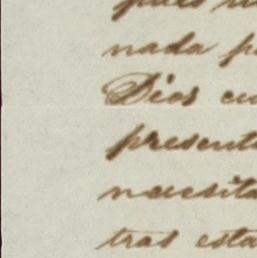 pues
nada
Dios
present
necesita
tras esta